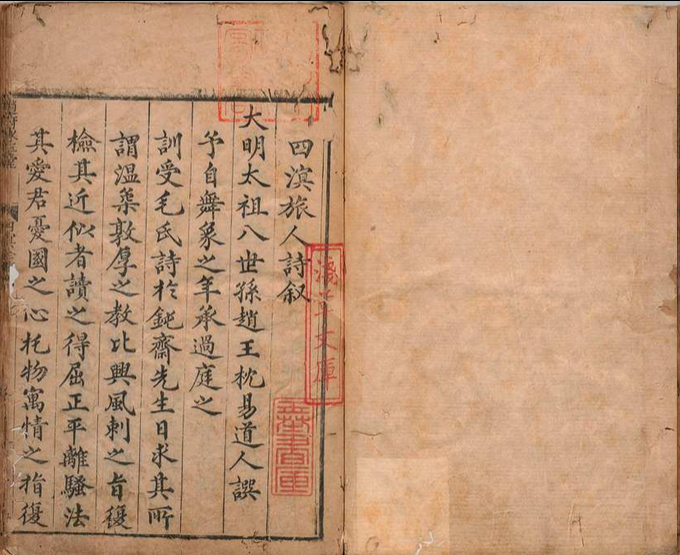 四溟旅人詩叙
大明太祖八世孫趙王枕易道人譔
予自舞象之年承過庭之
訓受毛氏詩於鈍齋先生日求其所
謂温柔敦厚之教比興風刺之旨復
檢其近似者讀之得屈正平離騷法
其愛君憂國之心托物寓情之指復
淺草文庫